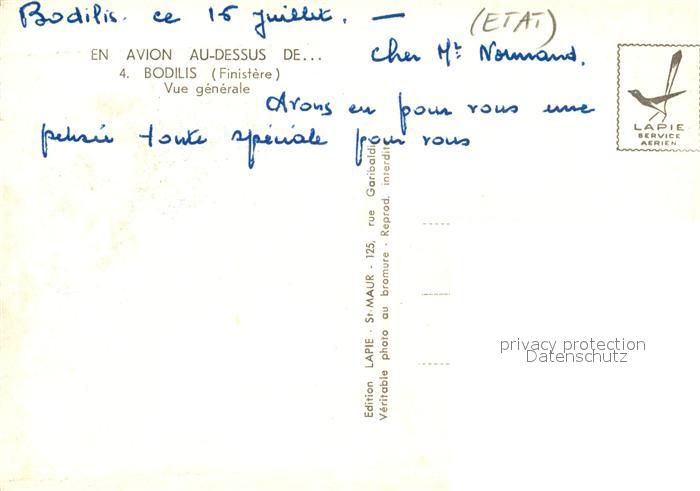 Bodilis. ce 15 juillet. —
(ETAT)
EN AVION AU-DESSUS DE...
4. BODILIS (Finistère)
Vue générale
cher Mr Normand.
Avons eu pour vous une
pensée toute spéciale pour vous
LAPIE
SERVICE
AERIEN
Edition LAPIE - St-MAUR - 125, rue Garibaldi
Véritable photo au bromure - Reprod. interdite
privacy protection
Datenschutz